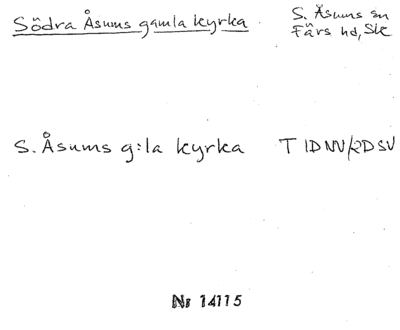 Södra Åsums gamla kyrka
S. Åsums sn
Färs hd, Sk
S. Åsums g:la kyrka T 1D NV/2D SV
Nr 14115